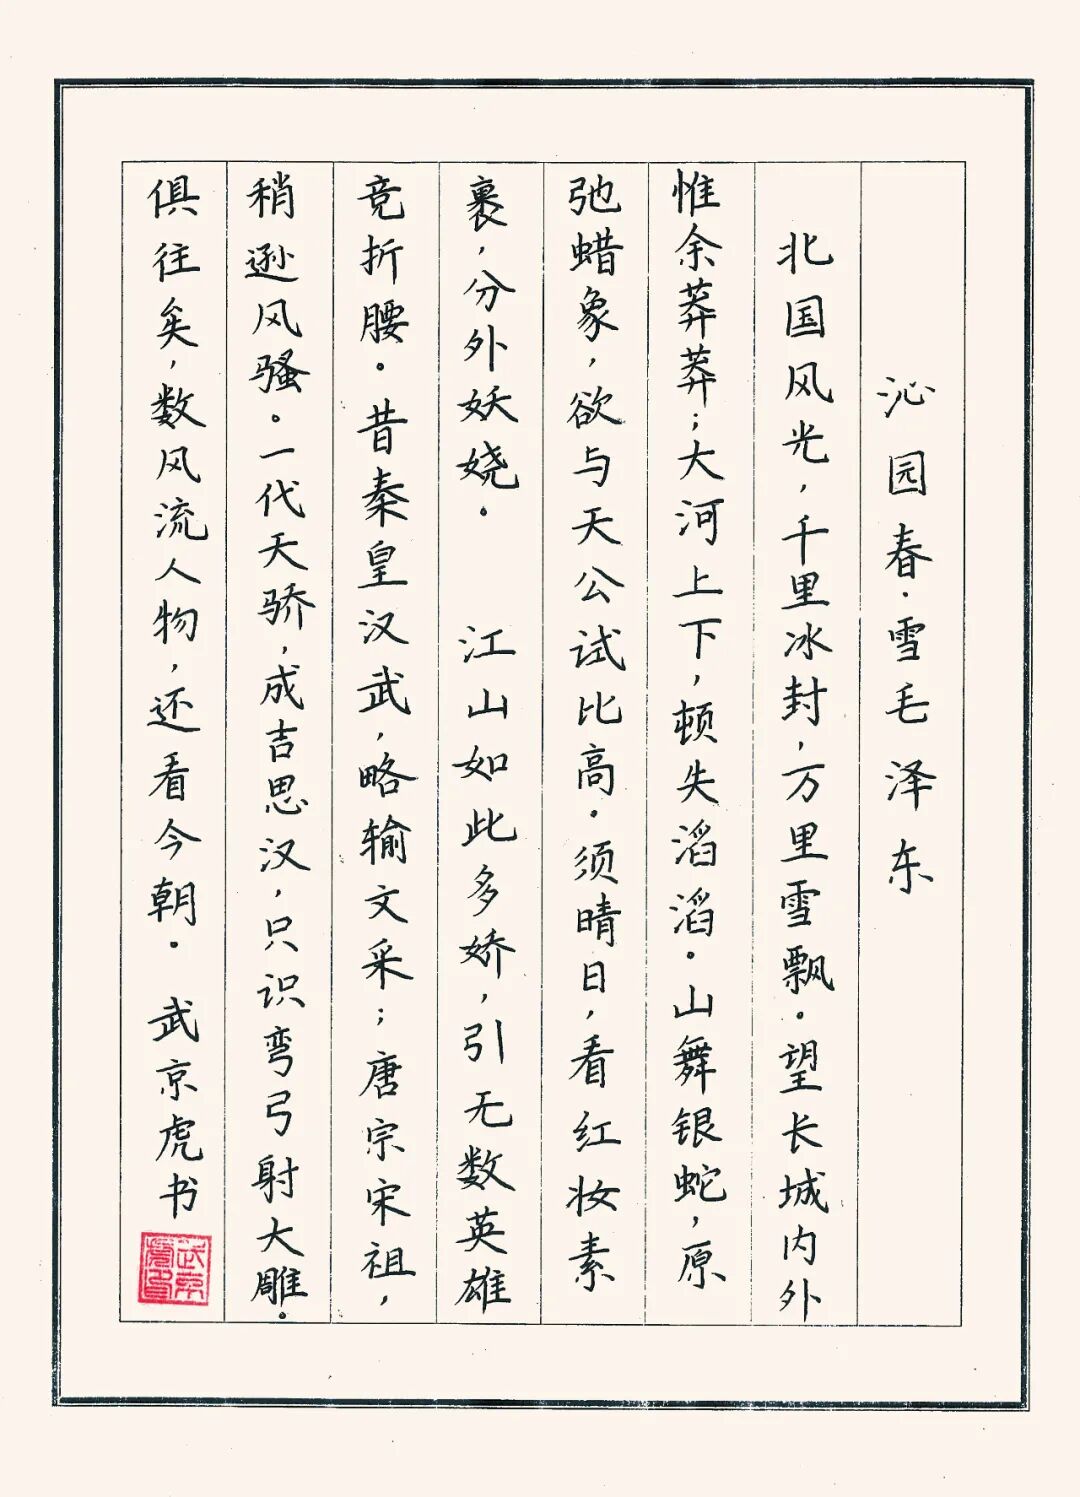 沁园春·雪毛泽东
北国风光，千里冰封，万里雪飘。望长城内外
惟余莽莽；大河上下，顿失滔滔。山舞银蛇，原
弛蜡象，欲与天公试比高。须晴日，看红妆素
裹，分外妖娆。 江山如此多娇，引无数英雄
竞折腰。昔秦皇汉武，略输文采；唐宗宋祖，
稍逊风骚。一代天骄，成吉思汉，只识弯弓射大雕。
俱往矣，数风流人物，还看今朝。 武京虎书